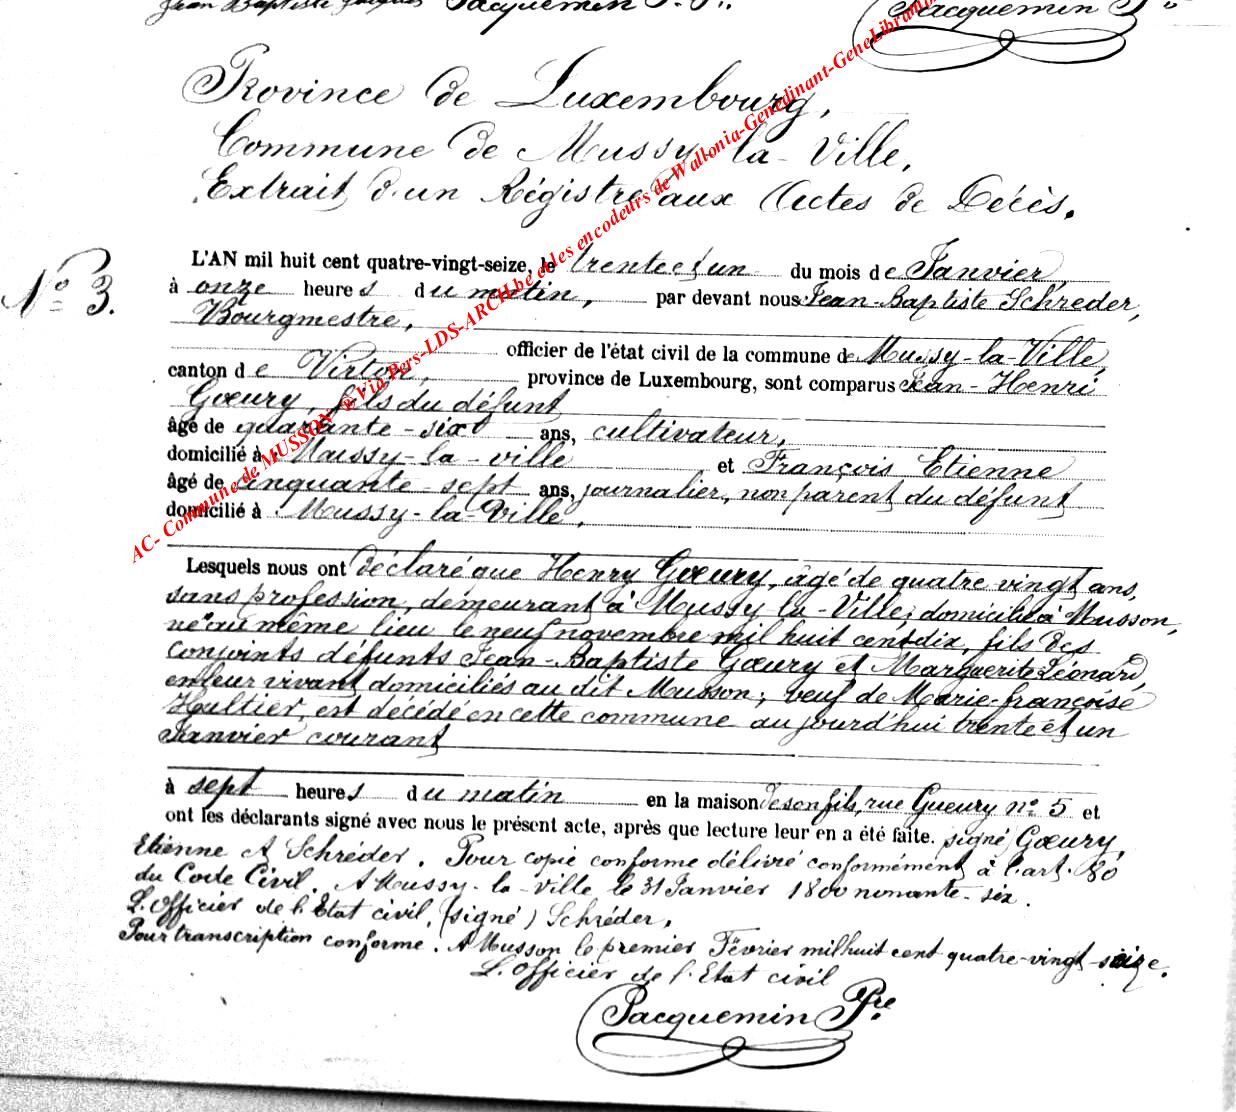 Jean Baptiste Jacques Jacquemin P.re
Jacquemin P.re
Province de Luxembourg,
Commune de Mussy-la-Ville,
Extrait d'un Régistre aux Actes de Décès.
N° 3.
L'AN mil huit cent quatre-vingt-seize, le trente et un du mois de Janvier,
à onze heures du matin, par devant nous Jean-Baptiste Schréder,
Bourgmestre,
officier de l'état civil de la commune de Mussy-la-Ville,
canton de Virton, province de Luxembourg, sont comparus Jean-Henri
Gœury, fils du défunt
âgé de quarante-six ans, cultivateur,
domicilié à Mussy-la-ville et François Etienne
âgé de cinquante-sept ans, journalier, non parent du défunt
domicilié à Mussy-la-Ville,
Lesquels nous ont déclaré que Henry Gœury, âgé de quatre vingt ans,
sans profession, demeurant à Mussy-la-Ville, domicilié à Musson,
né au même lieu le neuf novembre mil huit cent dix, fils des
conjoints défunts Jean-Baptiste Gœury et Marguerite Léonard,
en leur vivant domiciliés au dit Musson; veuf de Marie-françoise
Haultier, est décédé en cette commune aujourd'hui trente et un
Janvier courant
à sept heures du matin en la maison de son fils, rue Gueury n° 5 et
ont les déclarants signé avec nous le présent acte, après que lecture leur en a été faite. signé Gœury,
Etienne & Schréder. Pour copie conforme délivré conformément à l'art. 80
du Code Civil. A Mussy-la-ville le 31 Janvier 1800 nonante-six.
L'Officier de l'Etat civil, (signé) Schréder,
Pour transcription conforme. A Musson le premier Février mil huit cent quatre-vingt-seize.
L'Officier de l'Etat civil
Jacquemin P.re
AC- Commune de MUSSON @ Via Pers-LDS-ARCH.be et les encodeurs de Wallonia-Genedinant-GeneLibramont